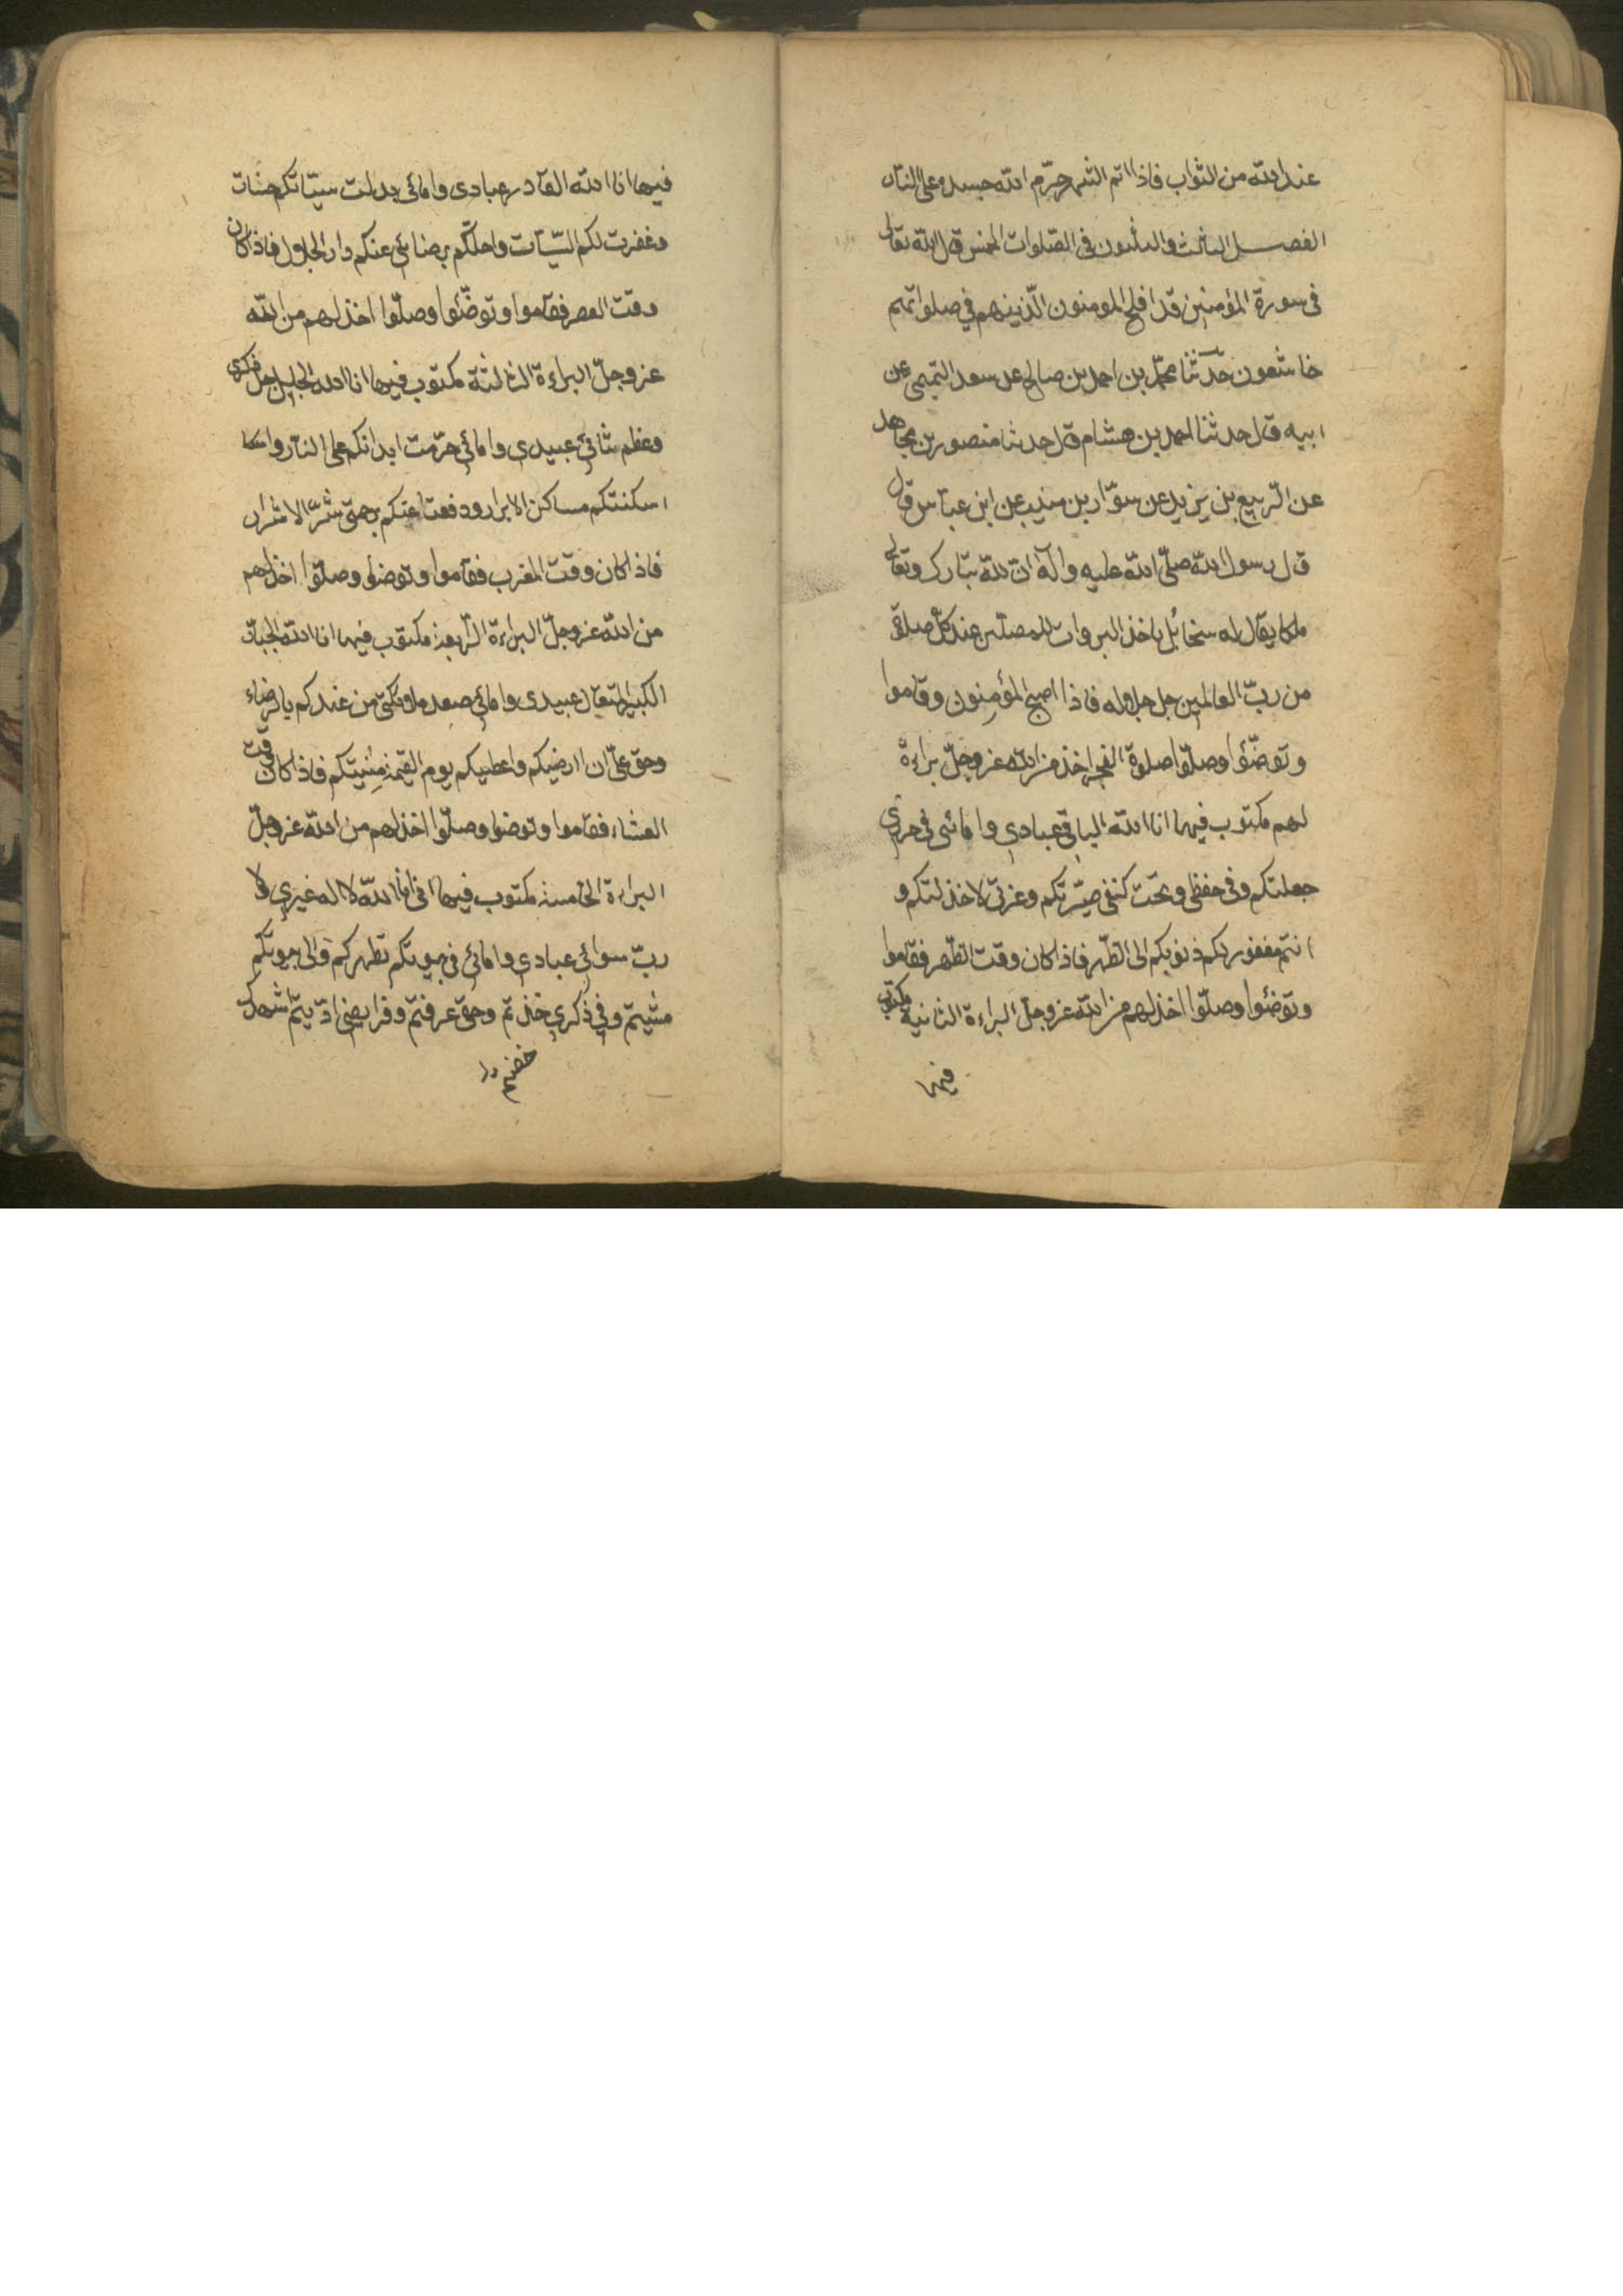 عند الله من الثواب فاذا تم الشهر حرّم الله جسده على النار
الفصــل الثالث والثلثون فى الصّلوات الخمس قال الله تعالى
فى سورة المؤمنين قد افلح المومنون الّذين هم في صلواتهم
خاشعون حدّثنا محمّد بن احمد بن صالح عن سعد التميمى عن
ابيه قال حدثنا احمد بن هشام قال حدثنا منصور بن مجاهد
عن الرّبيع بن يزيد عن سوّار بن منيب عن ابن عباس قال
قال رسول الله صلّى الله عليه وآله انّ لله تبارك وتعالى
ملكا يقال له سخائل ياخذ البروات للمصلّين عند كلّ صلوة
من ربّ العالمين جل جلاله فاذا اصبح المؤمنون وقاموا
وتوضّئوا وصلّوا صلوة الفجر اخذ من الله عزوجلّ براءة
لهم مكتوب فيها انا الله الباقى عبادي وامائى فى حرزي
جعلتكم وفى حفظى وتحت كنفى صيّرتكم وعزتى لاخذلتكم و
انتم مغفور لكم ذنوبكم الى الظّهر فاذا كان وقت الظّهر فقاموا
وتوضئوا وصلّوا اخذ لهم من الله عزوجلّ البراءة الثانية مكتوب
فيها
فيها انا الله القادر عبادى وامائى بدلت سيّاتكم حسنات
وغفرت لكم السّيّآت واحلتكم برضائى عنكم دار الجلال فاذا كان
وقت العصر فقاموا وتوضّئوا وصلّوا اخذ لهم من الله
عزوجلّ البراءة الثالثة مكتوب فيها انا الله الجليل جل ذكرى
وعظم عبيدى وامائى حرّمت ابدانكم على النار
اسكنتكم مساكن الابرار ودفعت عنكم برحمتى شرّ الاشرار
فاذا كان وقت المغرب فقاموا وتوضئوا وصلّوا اخذ لهم
من الله عزوجلّ البراءة الرّابعة مكتوب فيها انا الله الجبّار
الكبير المتعال عبيدى وامائى صعد ملائكتى من عندكم بالرضاء
وحق علىّ ان ارضيكم واعطيكم يوم القيمة منيتكم فاذا كان وقت
العشاء فقاموا وتوضوا وصلّوا اخذ لهم من الله عزوجلّ
البراءة الخامسة مكتوب فيها انى انا الله لا اله غيري ولا
ربّ سوائى عبادي وامائى فى بيوتكم تطهركم والى بيوتكم
مشيتم وفي ذكري خضتم وحقى عرفتم وفرايضى ادّيتم اشهدك
خضتم